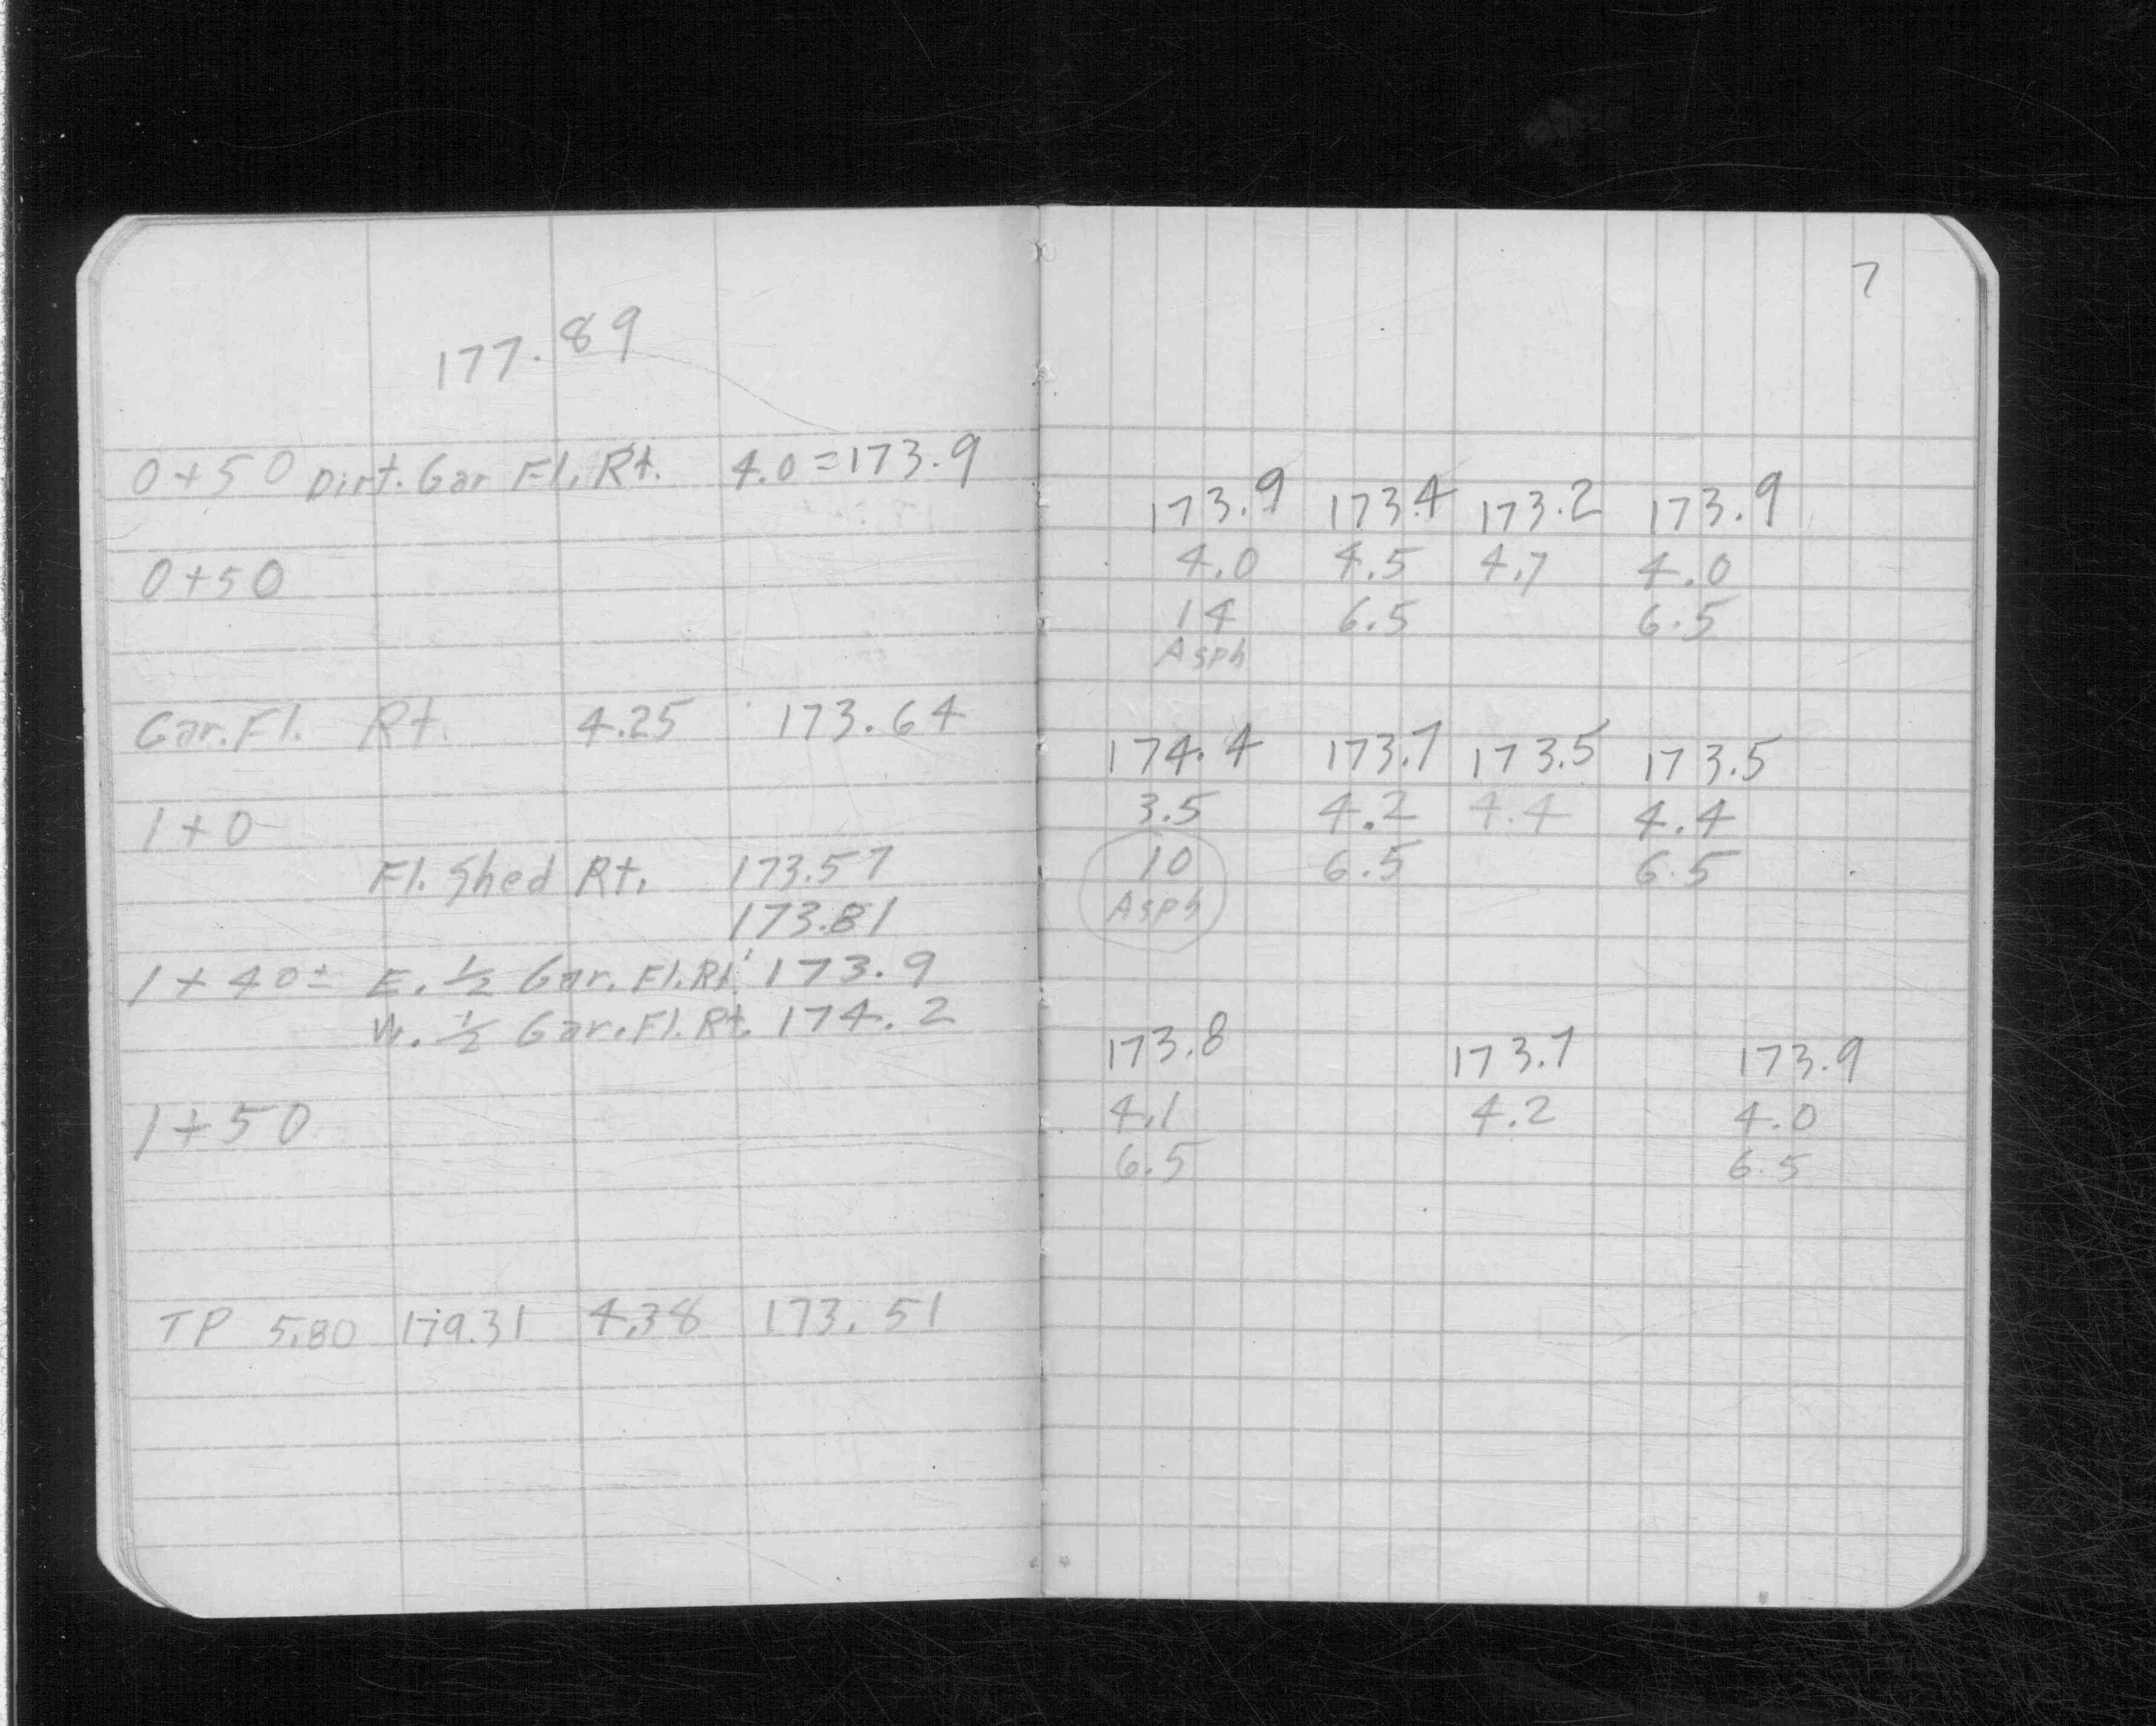 177.89
0+50 Dirt. Gar Fl. Rt. 4.0 = 173.9
0+50
Gar. Fl. Rt. 4.25 173.64
1+0
Fl. Shed Rt. 173.57
173.81
1+40± E. ½ Gar. Fl. Rt. 173.9
W. ½ Gar. Fl. Rt. 174.2
1+50
TP 5.80 179.31 4.38 173.51
7
173.9 173.4 173.2 173.9
4.0 4.5 4.7 4.0
14 6.5 6.5
Asph
174.4 173.7 173.5 173.5
3.5 4.2 4.4 4.4
10 6.5 6.5
Asph
173.8 173.7 173.9
4.1 4.2 4.0
6.5 6.5